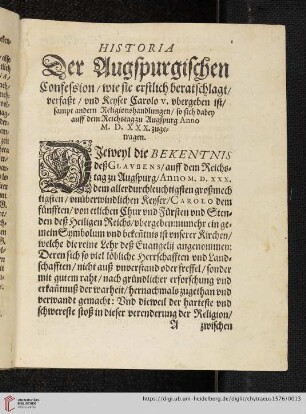 HISTORIA
Der Augspurgischen
Confession / wie sie erstlich beratschlagt /
verfaßt / vnd Keyser Carolo v. vbergeben ist /
sampt andern Religionshandlungen / so sich dabey
auff dem Reichstag zu Augspurg Anno
M. D. XXX. zuge-
tragen.
DIeweyl die BEKENTNIS
deß GLAVBENS / auff dem Reichs-
tag zu Augspurg / ANNO M. D. XXX.
dem allerdurchleuchtigsten großmech
tigsten / vnüberwindlichen Keyser / CAROLO dem
fünfften / von etlichen Chur vnd Fürsten vnd Sten-
den deß Heiligen Reichs / vbergeben nunmehr ein ge-
mein Symbolum vnd bekentnis ist vnserer Kirchen /
welche die reine Lehr deß Euangelij angenommen:
Deren sich so viel löbliche Herrschafften vnd Land-
schafften / nicht auß vnuerstand oder freffel / sonder
mit gutem raht / nach gründlicher erforschung vnd
erkantnuß der warheit / hernachmals zugethan vnd
verwandt gemacht: Vnd dieweil der harteste vnd
schwereste stoß in dieser verenderung der Religion /
A zwischen
https://digi.ub.uni-heidelberg.de/diglit/chytraeus1576/0013
UNIVERSITÄTS-
BIBLIOTHEK
HEIDELBERG